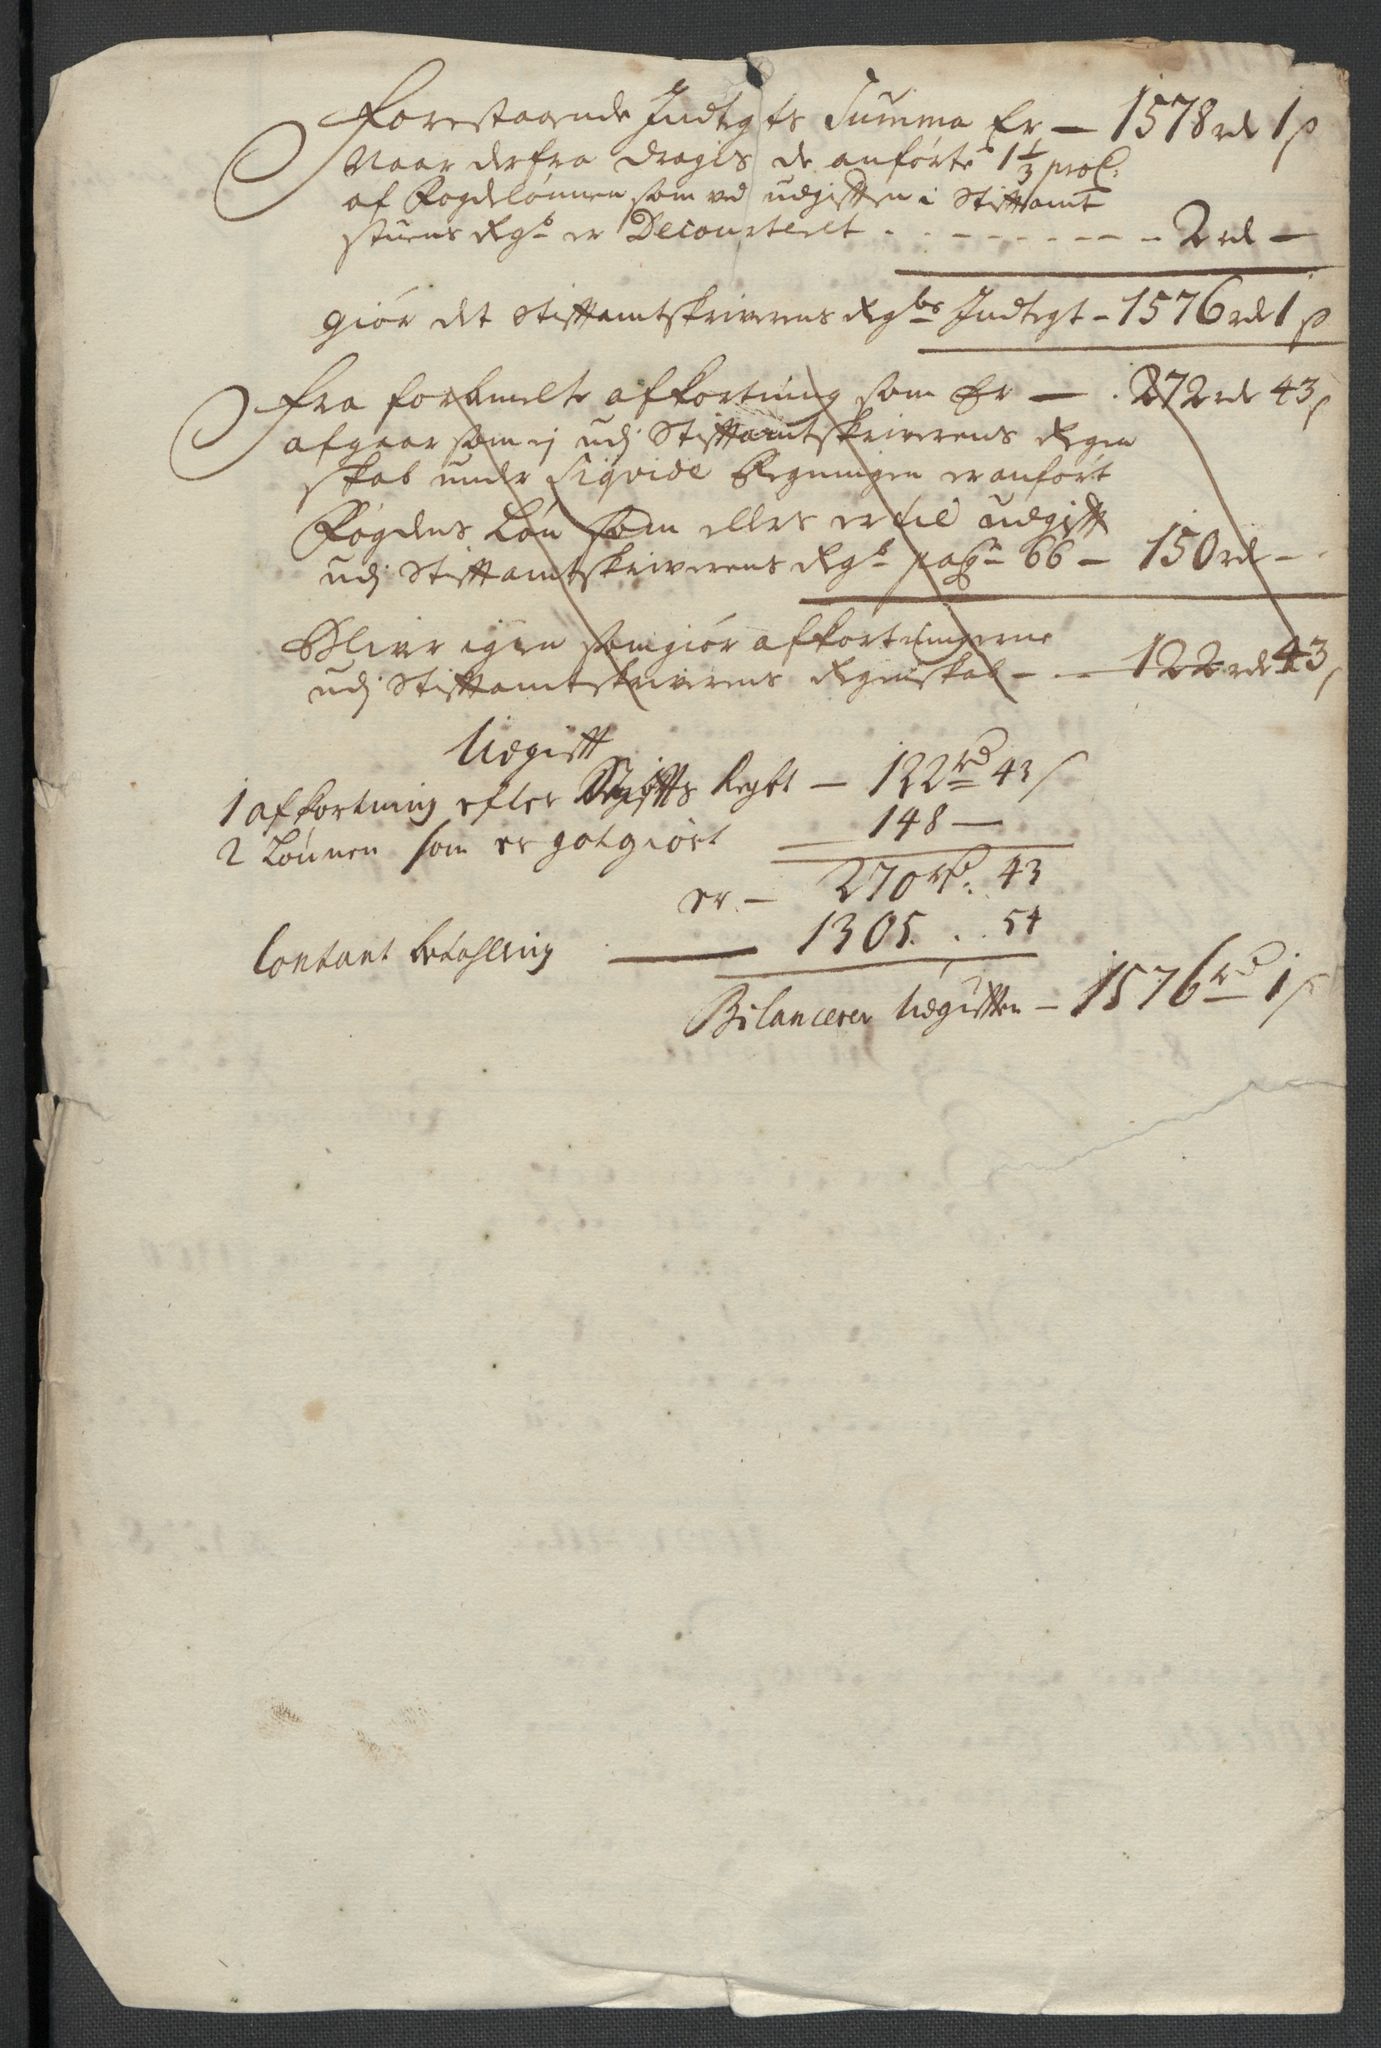 Forestaaende Indtegts Summa Er — 1578 rd 1 ß
Naar derfra drages de anførte 1 1/3 proC:
af Fogdelønnen som ved udgiften i Stiftamt
stuens Regs: er Decourteret - - - - - - - - - 2 rd —
giør det Stiftamtskriverens Regbs Indtegt - 1576 rd 1 ß
Fra forbemelte afkortning som Er — . 272 rd 43 ß
afgaar som ej udj Stiftamtskriverens Regen
skab under Liqvide Regningen er anført
Fogdens Løn som ellers er til udgift
udj Stiftamtskriverens Regs: pagn 66 — 150 rd - -
Bliver igien som giør afkortningerne
udj Stiftamtskriverens Regenskab - - - 122 rd 43 ß
Udgift
1 afkortning efter Stiftts Regbt — 122 rd 43 ß
2 Lønnen som er gotgiört 148 —
er — 270 rd: 43
Contant betahling — 1305 . . 54
Bilancerer Udgiften — 1576 rd 1 ß